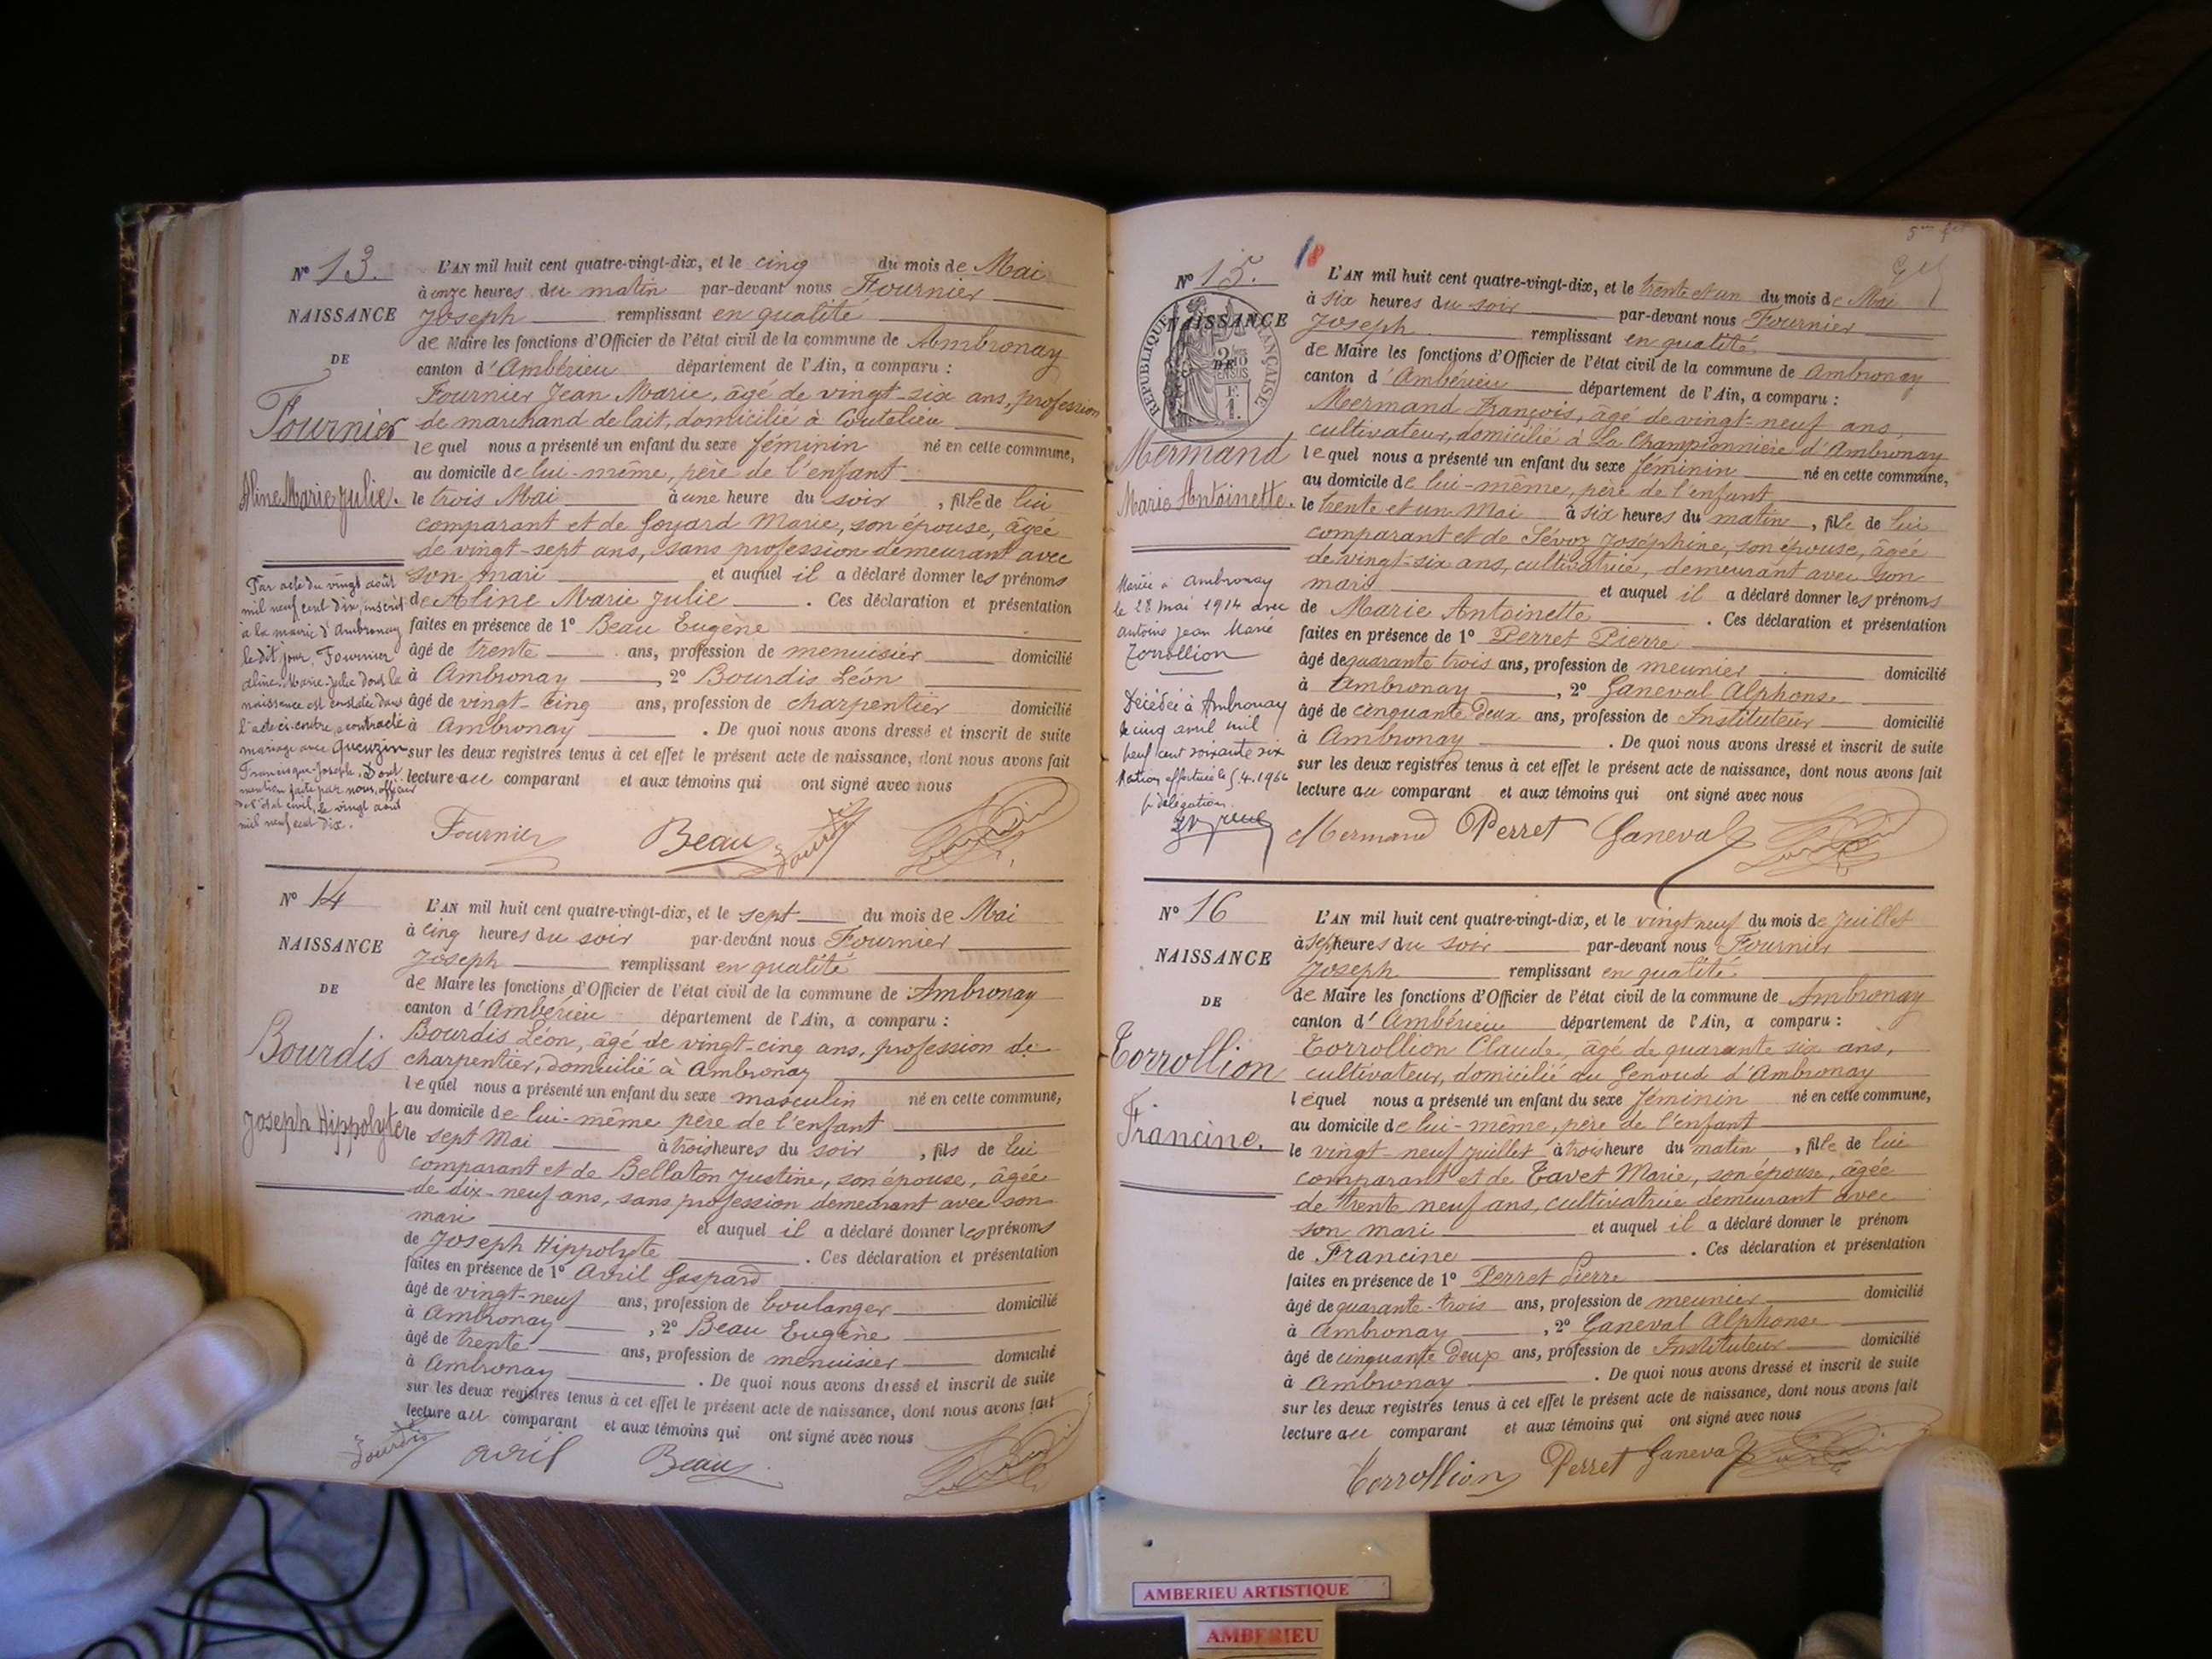 Nº 13.
NAISSANCE
DE
Fournier
Aline Marie Julie.
Par acte du vingt août
mil neuf cent dix, inscrit
à la mairie d'Ambronay
le dit jour, Fournier
Aline-Marie-Julie dont la
naissance est constatée dans
l'acte ci-contre, a contracté
mariage avec
Francisque-Joseph. Dont
mention faite par nous, officier
de l'état civil, le vingt août
mil neuf cent dix.
L'AN mil huit cent quatre-vingt-dix, et le cinq du mois de Mai
à onze heures du matin par-devant nous Fournier
Joseph remplissant en qualité
de Maire les fonctions d'Officier de l'état civil de la commune de Ambronay
canton d'Ambérieu département de l'Ain, a comparu :
Fournier Jean Marie, âgé de vingt-six ans, profession
de marchand de lait, domicilié à Coutelieu
lequel nous a présenté un enfant du sexe féminin né en cette commune,
au domicile de lui-même, père de l'enfant
le trois Mai à une heure du soir, fille de lui
comparant et de Goyard Marie, son épouse, âgée
de vingt-sept ans, sans profession demeurant avec
son mari et auquel il a déclaré donner les prénoms
de Aline Marie Julie. Ces déclaration et présentation
faites en présence de 1º Beau Eugène
âgé de trente ans, profession de menuisier domicilié
à Ambronay, 2º Bourdis Léon
âgé de vingt-cinq ans, profession de charpentier domicilié
à Ambronay. De quoi nous avons dressé et inscrit de suite
sur les deux registres tenus à cet effet le présent acte de naissance, dont nous avons fait
lecture au comparant et aux témoins qui ont signé avec nous
Fournier Beau Bourdis
Nº 14
NAISSANCE
DE
Bourdis
Joseph Hippolyte
L'AN mil huit cent quatre-vingt-dix, et le sept du mois de Mai
à cinq heures du soir par-devant nous Fournier
Joseph remplissant en qualité
de Maire les fonctions d'Officier de l'état civil de la commune de Ambronay
canton d'Ambérieu département de l'Ain, a comparu :
Bourdis Léon, âgé de vingt-cinq ans, profession de
charpentier, domicilié à Ambronay
lequel nous a présenté un enfant du sexe masculin né en cette commune,
au domicile de lui-même père de l'enfant
le sept Mai à trois heures du soir, fils de lui
comparant et de Bellaton Justine, son épouse, âgée
de dix-neuf ans, sans profession demeurant avec son
mari et auquel il a déclaré donner les prénoms
de Joseph Hippolyte. Ces déclaration et présentation
faites en présence de 1º Avril Gaspard
âgé de vingt-neuf ans, profession de boulanger domicilié
à Ambronay, 2º Beau Eugène
âgé de trente ans, profession de menuisier domicilié
à Ambronay. De quoi nous avons dressé et inscrit de suite
sur les deux registres tenus à cet effet le présent acte de naissance, dont nous avons fait
lecture au comparant et aux témoins qui ont signé avec nous
Bourdis avril Beau
5me
18
Nº 15.
NAISSANCE
DE
RÉPUBLIQUE FRANÇAISE
Mermand
Marie Antoinette.
Mariée à Ambronay
le 28 mai 1914 avec
Antoine Jean Marie
Torrollion
Décédée à Ambronay
le cinq avril mil
neuf cent soixante six
Mention effectuée le 5.4.1966
délégation
L'AN mil huit cent quatre-vingt-dix, et le trente et un du mois de Mai
à six heures du soir par-devant nous Fournier
Joseph remplissant en qualité
de Maire les fonctions d'Officier de l'état civil de la commune de Ambronay
canton d'Ambérieu département de l'Ain, a comparu :
Mermand François, âgé de vingt-neuf ans,
cultivateur, domicilié à La Championnière d'Ambronay
lequel nous a présenté un enfant du sexe féminin né en cette commune,
au domicile de lui-même, père de l'enfant
le trente et un Mai à six heures du matin, fille de lui
comparant et de Sévoz Joséphine, son épouse, âgée
de vingt-six ans, cultivatrice, demeurant avec son
mari et auquel il a déclaré donner les prénoms
de Marie Antoinette. Ces déclaration et présentation
faites en présence de 1º Perret Pierre
âgé de quarante trois ans, profession de meunier domicilié
à Ambronay, 2º Ganeval Alphonse
âgé de cinquante deux ans, profession de Instituteur domicilié
à Ambronay. De quoi nous avons dressé et inscrit de suite
sur les deux registres tenus à cet effet le présent acte de naissance, dont nous avons fait
lecture au comparant et aux témoins qui ont signé avec nous
Mermand Perret Ganeval
Nº 16
NAISSANCE
DE
Torrollion
Francine.
L'AN mil huit cent quatre-vingt-dix, et le vingt neuf du mois de Juillet
à sept heures du soir par-devant nous Fournier
Joseph remplissant en qualité
de Maire les fonctions d'Officier de l'état civil de la commune de Ambronay
canton d'Ambérieu département de l'Ain, a comparu :
Torrollion Claude, âgé de quarante six ans,
cultivateur, domicilié au Genoud d'Ambronay
lequel nous a présenté un enfant du sexe féminin né en cette commune,
au domicile de lui-même, père de l'enfant
le vingt-neuf juillet à trois heure du matin, fille de lui
comparant et de Tavet Marie, son épouse, âgée
de trente neuf ans, cultivatrice demeurant avec
son mari et auquel il a déclaré donner le prénom
de Francine. Ces déclaration et présentation
faites en présence de 1º Perret Pierre
âgé de quarante-trois ans, profession de meunier domicilié
à Ambronay, 2º Ganeval Alphonse
âgé de cinquante deux ans, profession de Instituteur domicilié
à Ambronay. De quoi nous avons dressé et inscrit de suite
sur les deux registres tenus à cet effet le présent acte de naissance, dont nous avons fait
lecture au comparant et aux témoins qui ont signé avec nous
Torrollion Perret Ganeval
AMBERIEU ARTISTIQUE
AMBERIEU